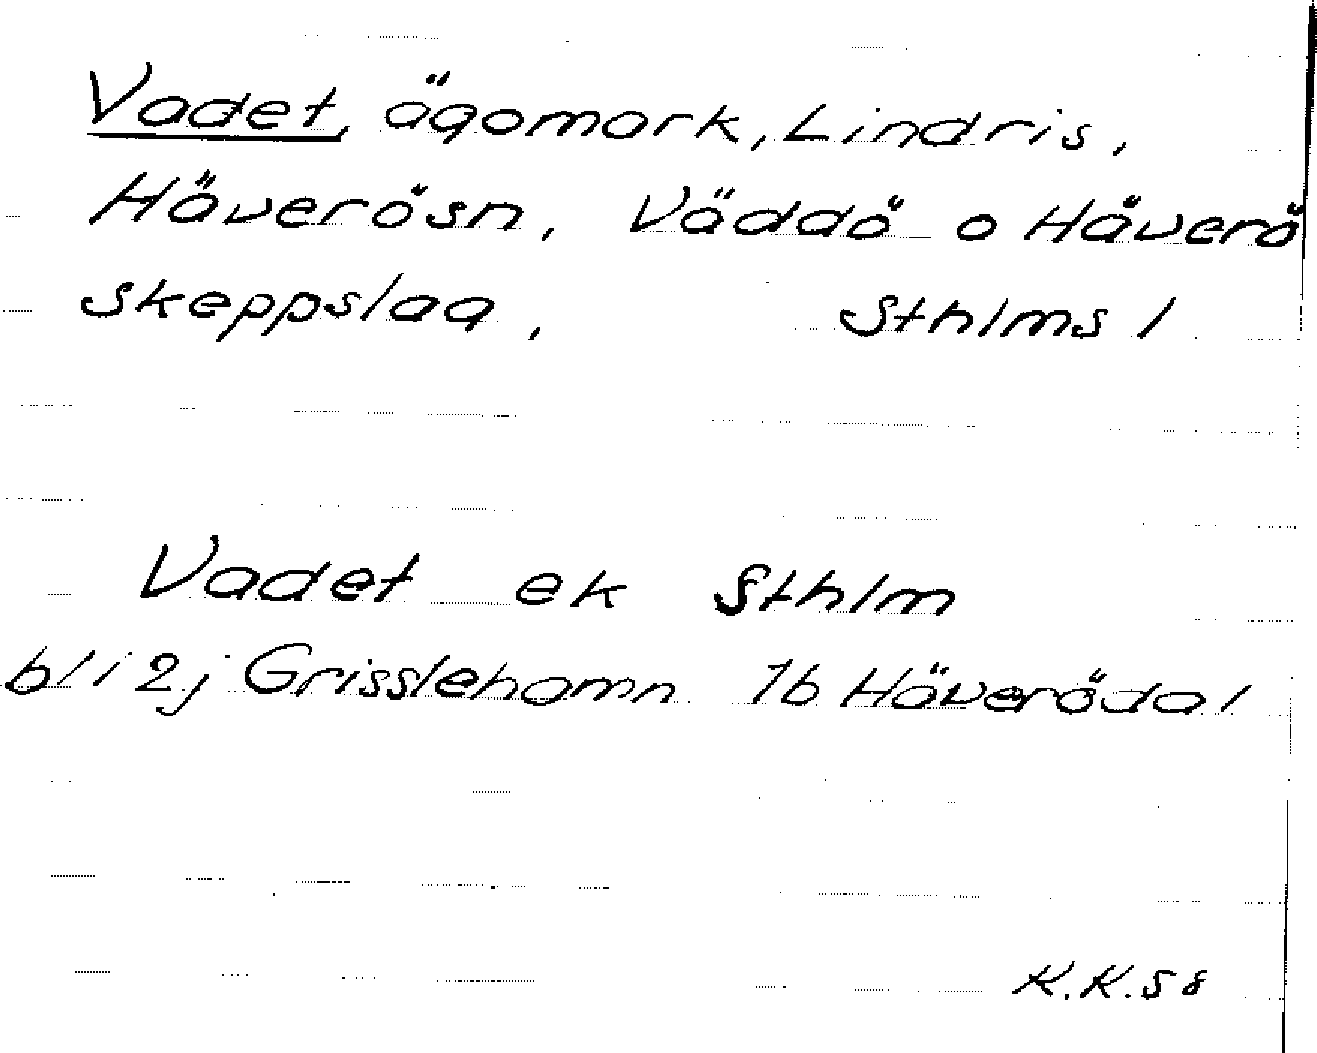 Vadet, ägomark, Lindris,
Häverösn, Väddö o Häverö
skeppslag, Sthlms l
Vadet ek Sthlm
bl i 2j Grisslehamn 1b Häverödal
K.K.58